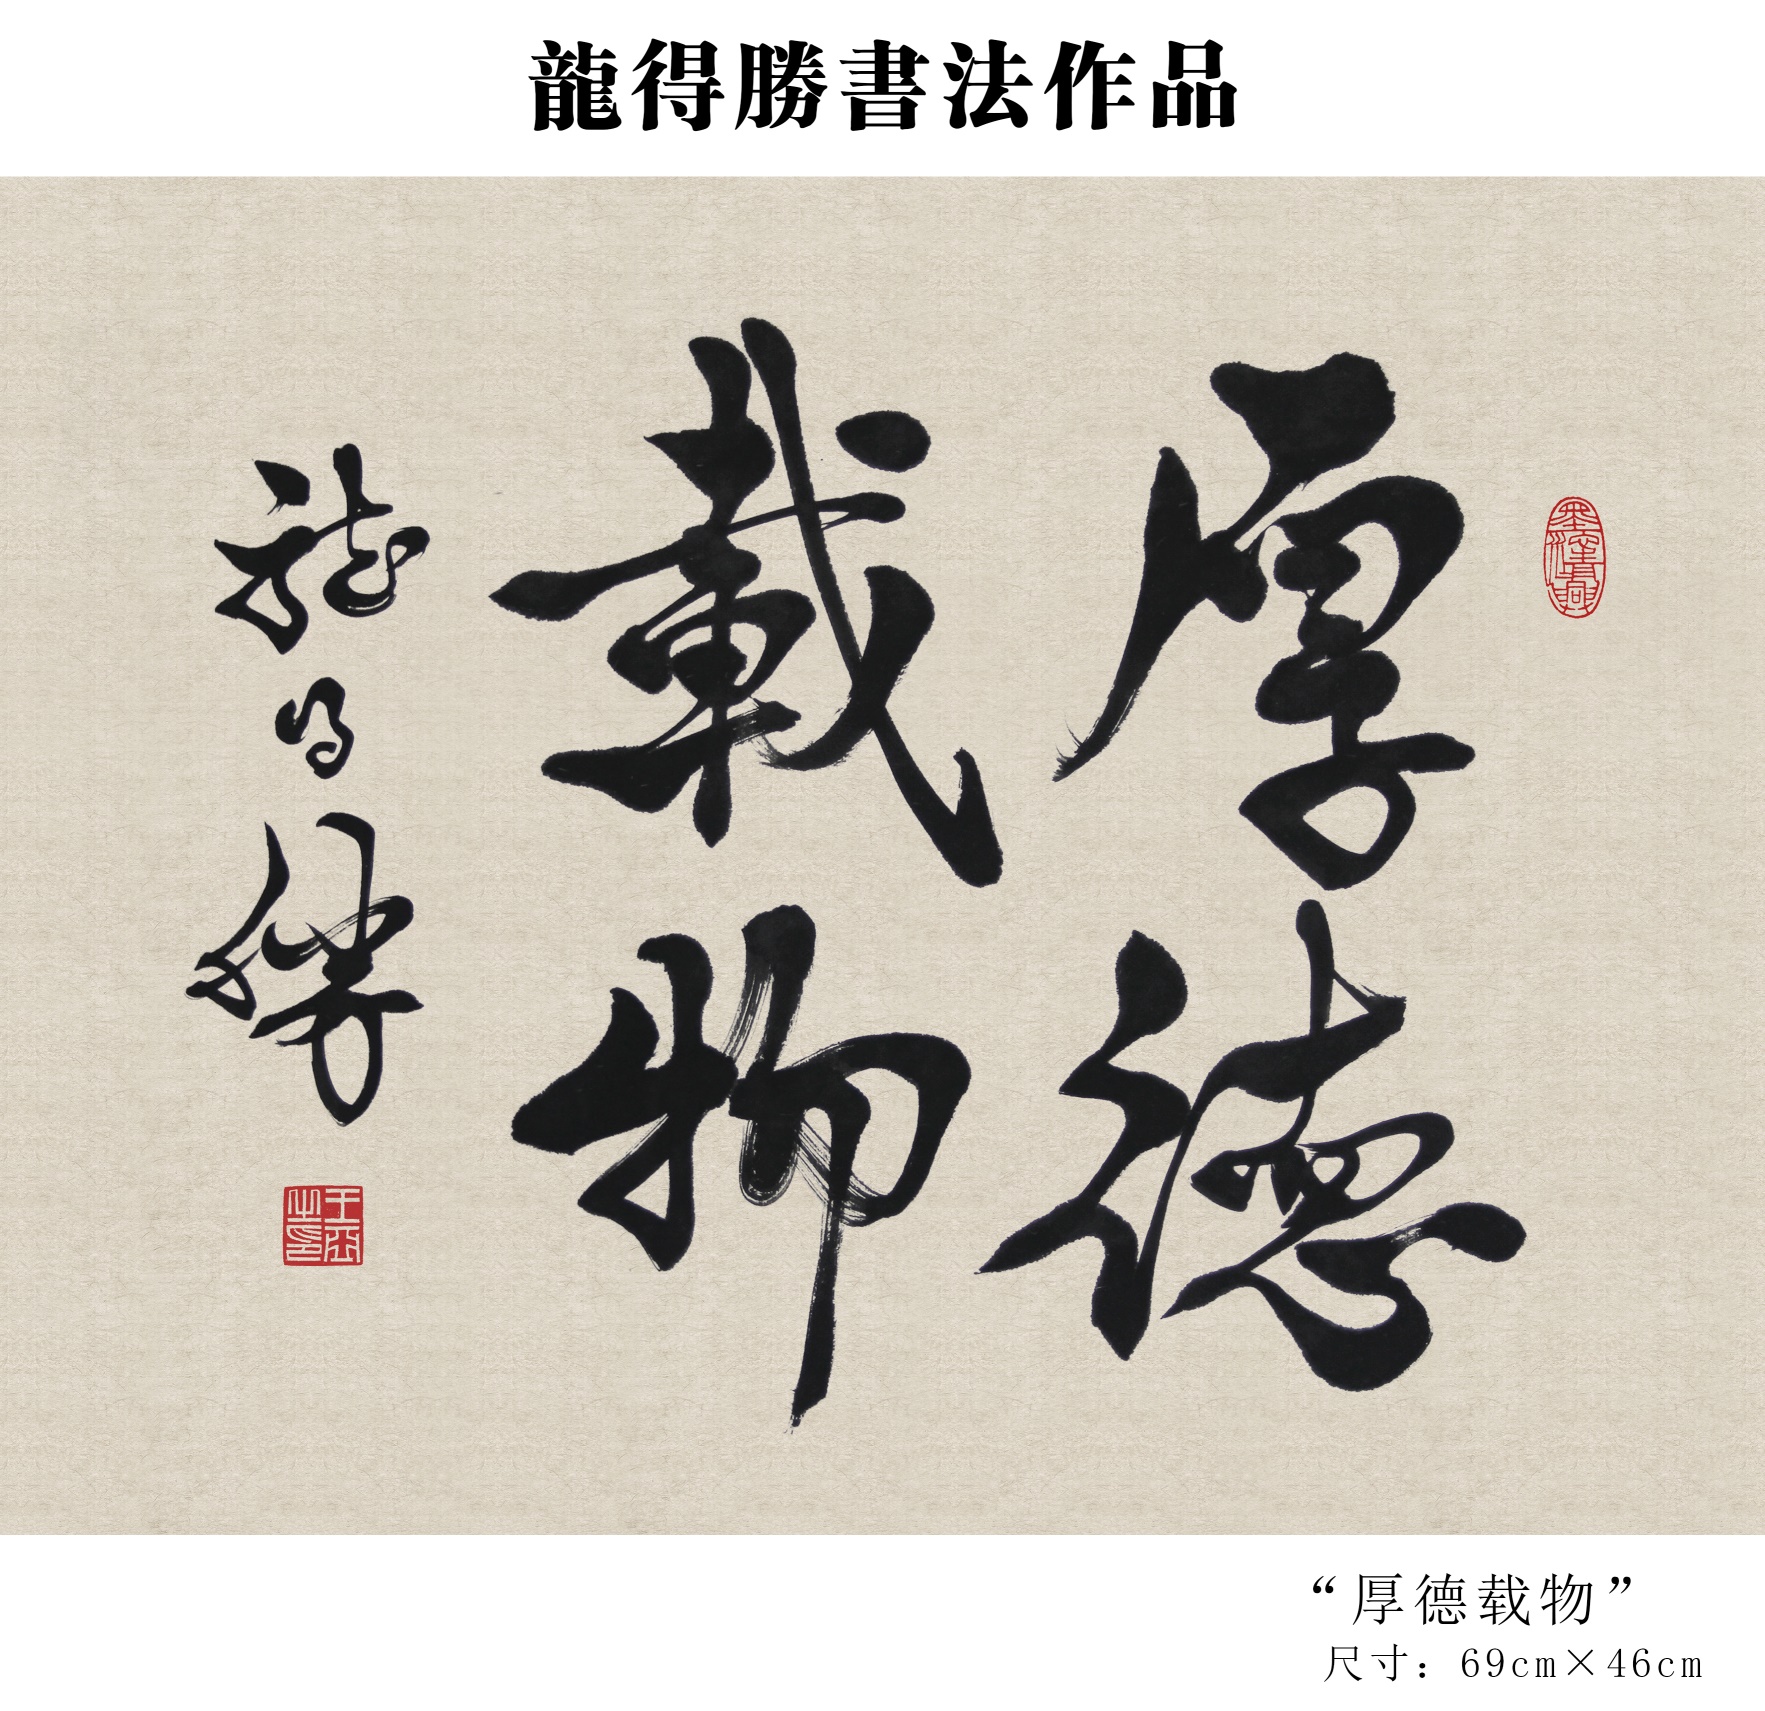 龍得勝書法作品
厚德
載物
龍得勝
“厚德载物”
尺寸：69cm×46cm